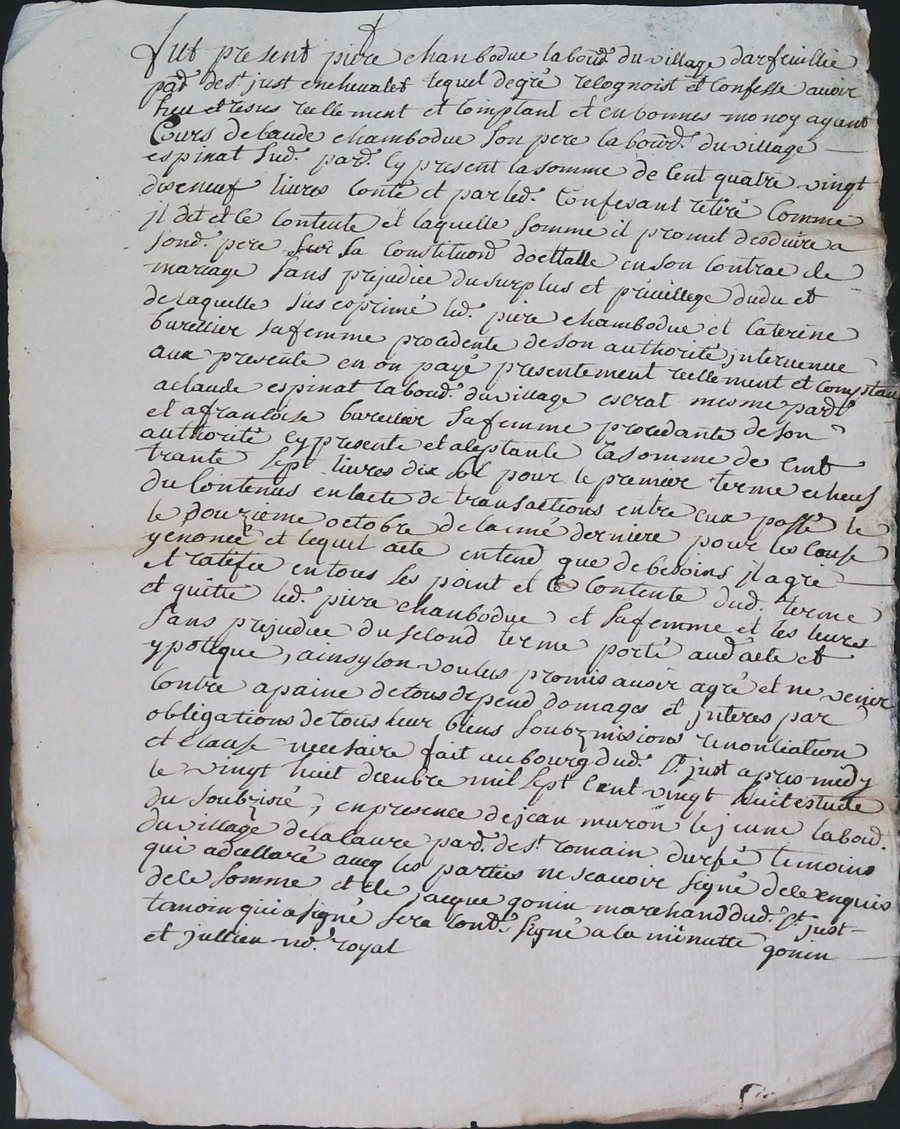 fut present piere chanbodue laboud. du village darfeuillie
pad. de st just enchevalet lequel de gré recognoist et confesse auoir
heu et resus reellement et comptant et en bonnes monoy ayant
Cours de laude chambodue son pere laboud. du village
espinat sud. pard. cy present la somme de Cent quatre vingt
dixneuf livres conté et par led. Confesant retiré comme
jl dit et le contente et laquelle somme il promet desduire a
sond. pere sur sa Constituond doctalle en son contrac de
mariage sans prejudice du surplus et priuillege dudu et
de laquelle sus esprimé led. piere chambodue et caterine
burellier sa femme procedente de son authorité jntervenue
aux presente en on payé presentement reellement et comptan
a claude espinat laboud. du village escrat mesme pardt
et a francoise burellier sa femme procedante de son
authorité cy presente et aceptante la somme de Cent
trante sept livres dix sol pour le premier terme echeus
du contenus en lacte de transactions entre eux passé le
le douzieme octobre de lanné derniere pour les cause
y enoncé et lequel acte entend que de besoins jl agré
et ratefie en tous les point et le contente dud. terme
et quitte led. piere chanbodue et sa femme et les leurs
sans prejudice du second terme porté aud. acte et
ypoteque, ainsy lon voulus promis auoir agré et ne venir
contre a paine de tous depend domages et jnteres par
obligations de tous leur biens soubzmissions renontiation
et clause necesaire fait au bourg dud. st. just apres midy
le vingt huit doeubre mil sept Cent vingt huit estude
du soubzsié, en presence de jean muron le jeune laboud.
du village de lalaure pard. de st romain durfé temoins
qui a declaré aueq les parties ne scauoir signé de ce enquis
de le somme et de jacque gonin marchand dud. st. just
tamoin qui a signé sera cond. signé a la minutte gonin
et jullien nd. royal